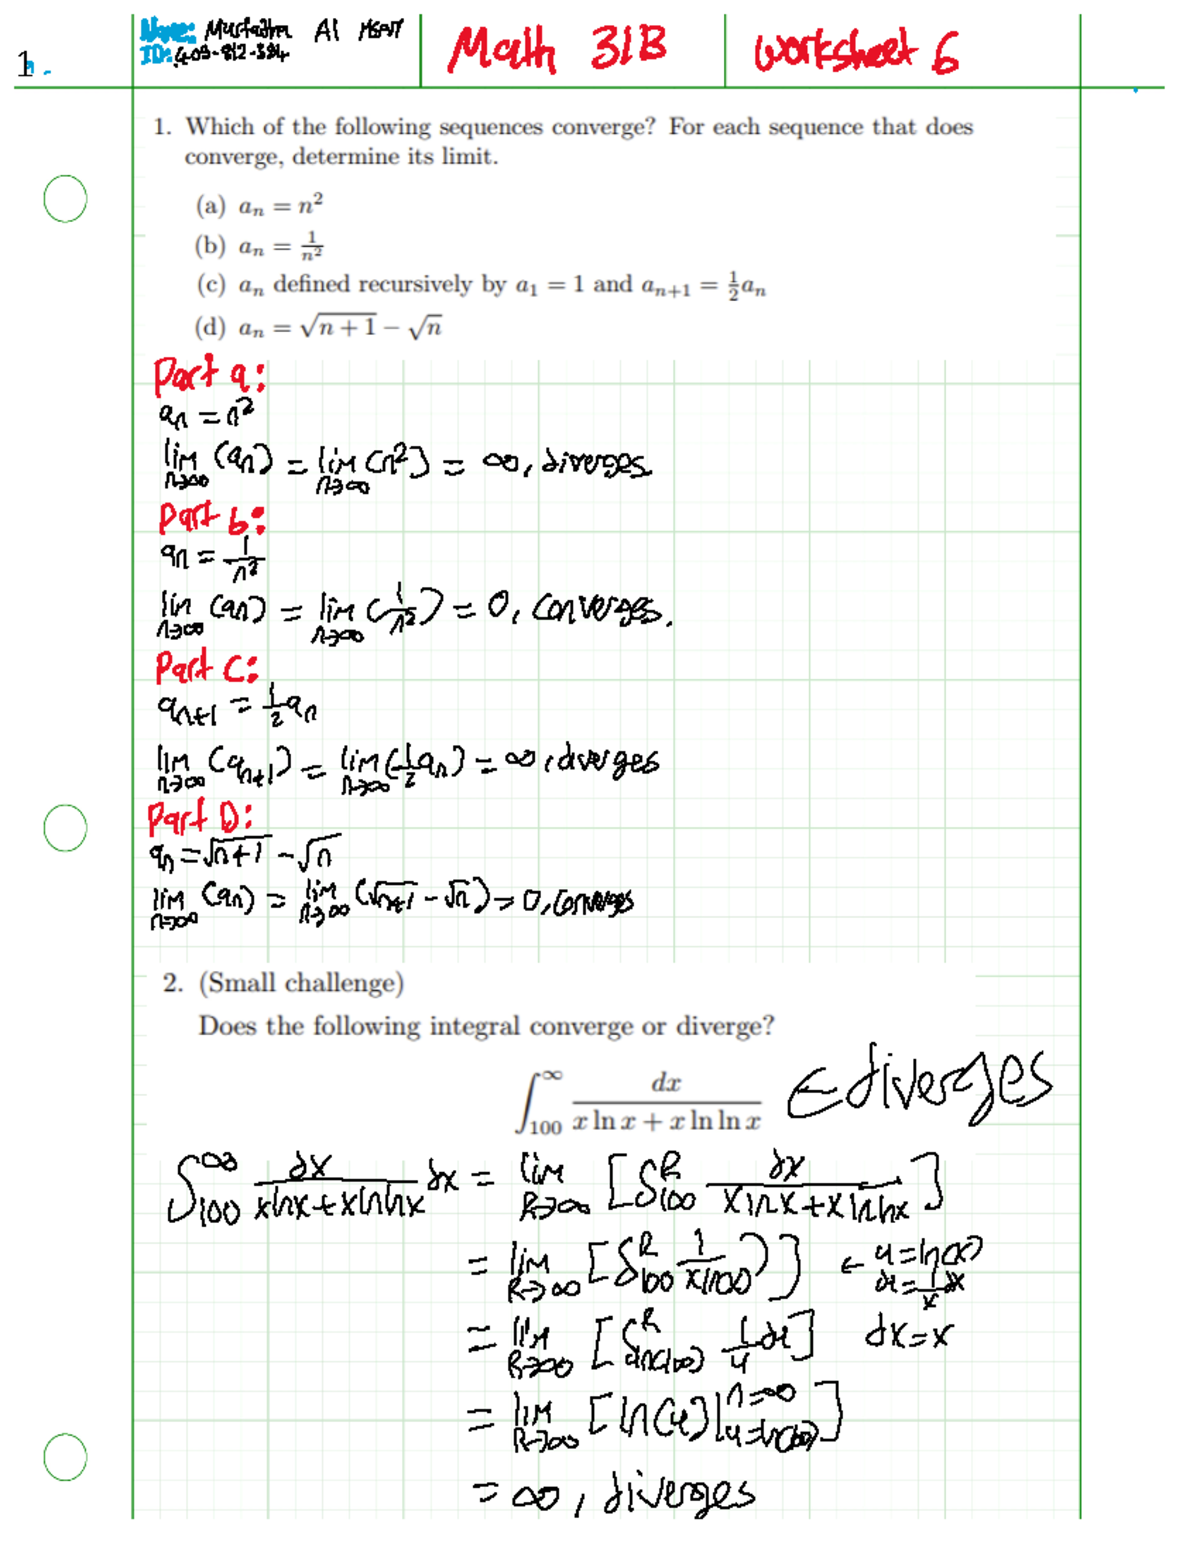 1.
Name: Murtadha Al
ID:
Math 31B
Worksheet 6
1. Which of the following sequences converge? For each sequence that does
converge, determine its limit.
(a) aₙ = n²
(b) aₙ = 1/n²
(c) aₙ defined recursively by a₁ = 1 and aₙ₊₁ = ½aₙ
(d) aₙ = √(n + 1) − √n
Part a:
aₙ = n²
lim n→∞ (aₙ) = lim n→∞ (n²) = ∞, diverges
Part b:
aₙ = 1/n²
lim n→∞ (aₙ) = lim n→∞ (1/n²) = 0, converges.
Part C:
aₙ₊₁ = ½aₙ
lim n→∞ (aₙ₊₁) = lim n→∞ (½aₙ) = ∞, diverges
Part D:
aₙ = √(n+1) − √n
lim n→∞ (aₙ) = lim n→∞ (√(n+1) − √n) = 0, converges
2. (Small challenge)
Does the following integral converge or diverge?
∫₁₀₀^∞ dx/(x ln x + x ln ln x) ← diverges
∫₁₀₀^∞ dx/(xlnx + xlnlnx) dx = lim R→∞ [∫₁₀₀^R dx/(xlnx + xlnlnx)]
= lim R→∞ [∫₁₀₀^R ] ← u = ln(x)
du = 1/x dx
= lim R→∞ [∫ln(100)^R 1/u du] dx = x
= lim R→∞ [ln(u)| u=ln(100)]
= ∞, diverges